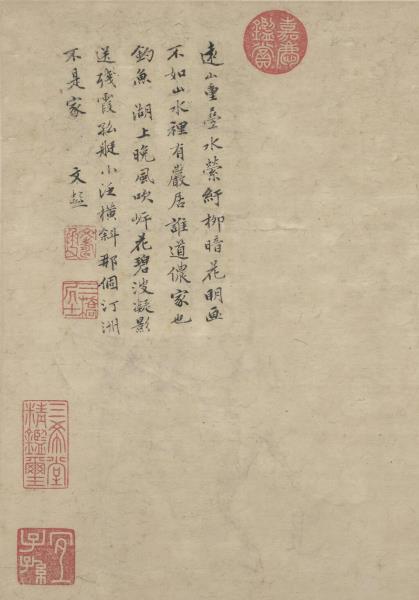 嘉慶鑑賞
遠山重疊水縈紆柳暗花明画
不如山水裡有巖居誰道儂家也
釣魚 湖上晚風吹㟁花碧波凝影
送殘霞孤艇小泛橫斜那個汀洲
不是家 文彭
文壽承氏
三橋居士
三希堂精鑑璽
宜子孫